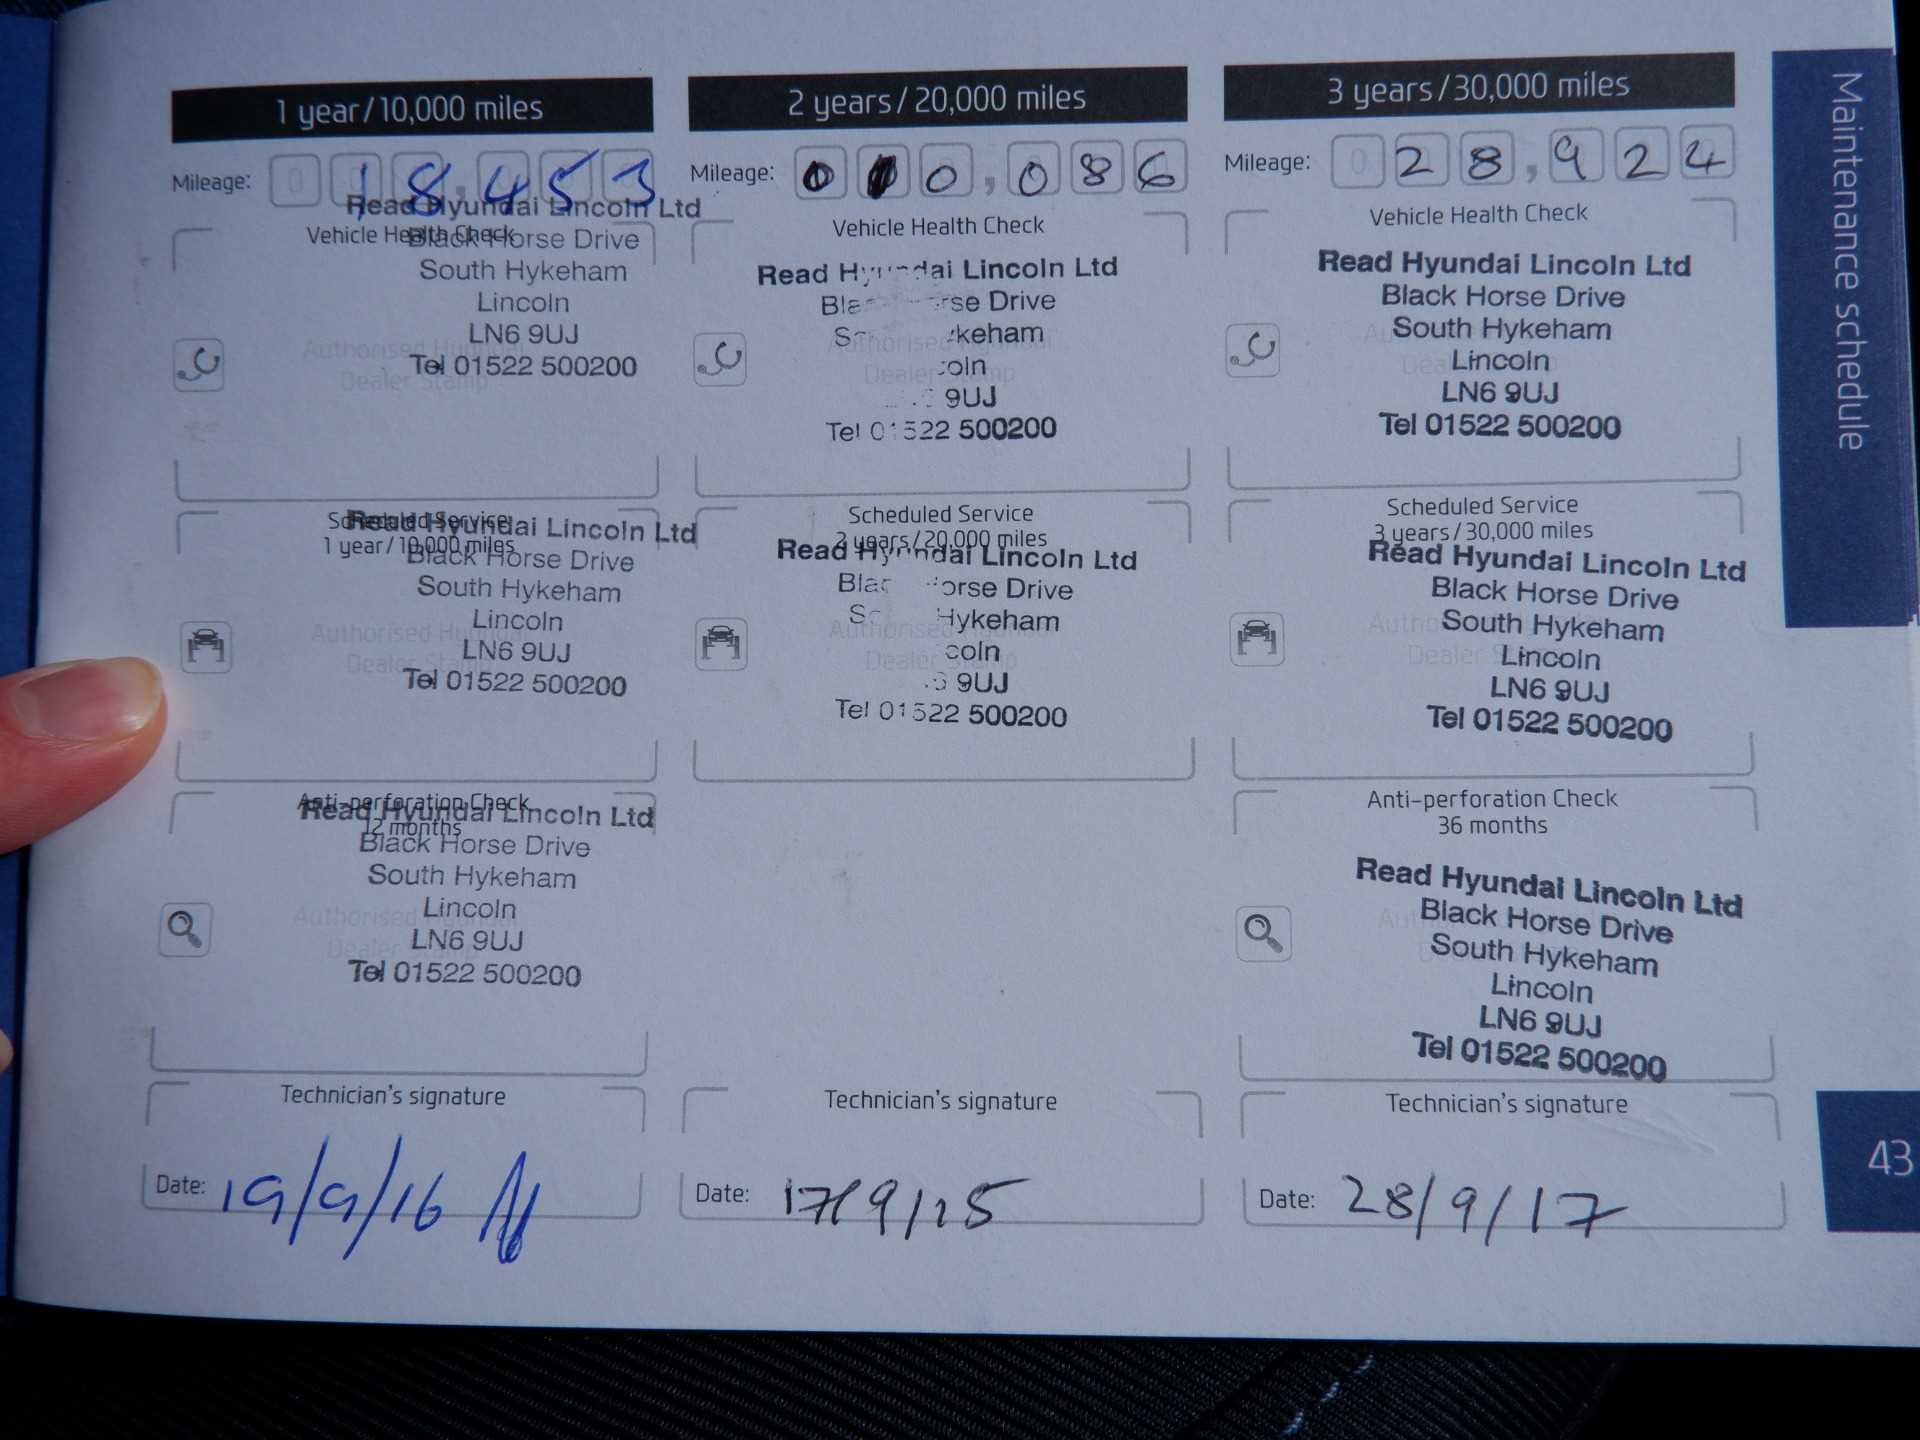 1 year/10,000 miles
Mileage: 18,453
Read Hyundai Lincoln Ltd
Vehicle Health Check
Black Horse Drive
South Hykeham
Lincoln
LN6 9UJ
Authorised Hyundai
Dealer Stamp
Tel 01522 500200
Scheduled Service
1 year/10,000 miles
Read Hyundai Lincoln Ltd
Black Horse Drive
South Hykeham
Lincoln
Authorised Hyundai
Dealer Stamp
LN6 9UJ
Tel 01522 500200
Anti-perforation Check
12 months
Read Hyundai Lincoln Ltd
Black Horse Drive
South Hykeham
Lincoln
Authorised Hyundai
Dealer Stamp
LN6 9UJ
Tel 01522 500200
Technician's signature
Date: 19/9/16
2 years/20,000 miles
Mileage: 0,086
Vehicle Health Check
Read Hyundai Lincoln Ltd
Drive
Authorised Hyundai
Dealer Stamp
9UJ
Tel 01522 500200
Scheduled Service
2 years/20,000 miles
Read Hyundai Lincoln Ltd
Horse Drive
Hykeham
Authorised Hyundai
Dealer Stamp
9UJ
Tel 01522 500200
Technician's signature
Date: 17/9/15
3 years/30,000 miles
Mileage: 028,924
Vehicle Health Check
Read Hyundai Lincoln Ltd
Black Horse Drive
South Hykeham
Lincoln
LN6 9UJ
Tel 01522 500200
Scheduled Service
3 years/30,000 miles
Read Hyundai Lincoln Ltd
Black Horse Drive
South Hykeham
Lincoln
LN6 9UJ
Tel 01522 500200
Anti-perforation Check
36 months
Read Hyundai Lincoln Ltd
Black Horse Drive
South Hykeham
Lincoln
LN6 9UJ
Tel 01522 500200
Technician's signature
Date: 28/9/17
Maintenance schedule
43